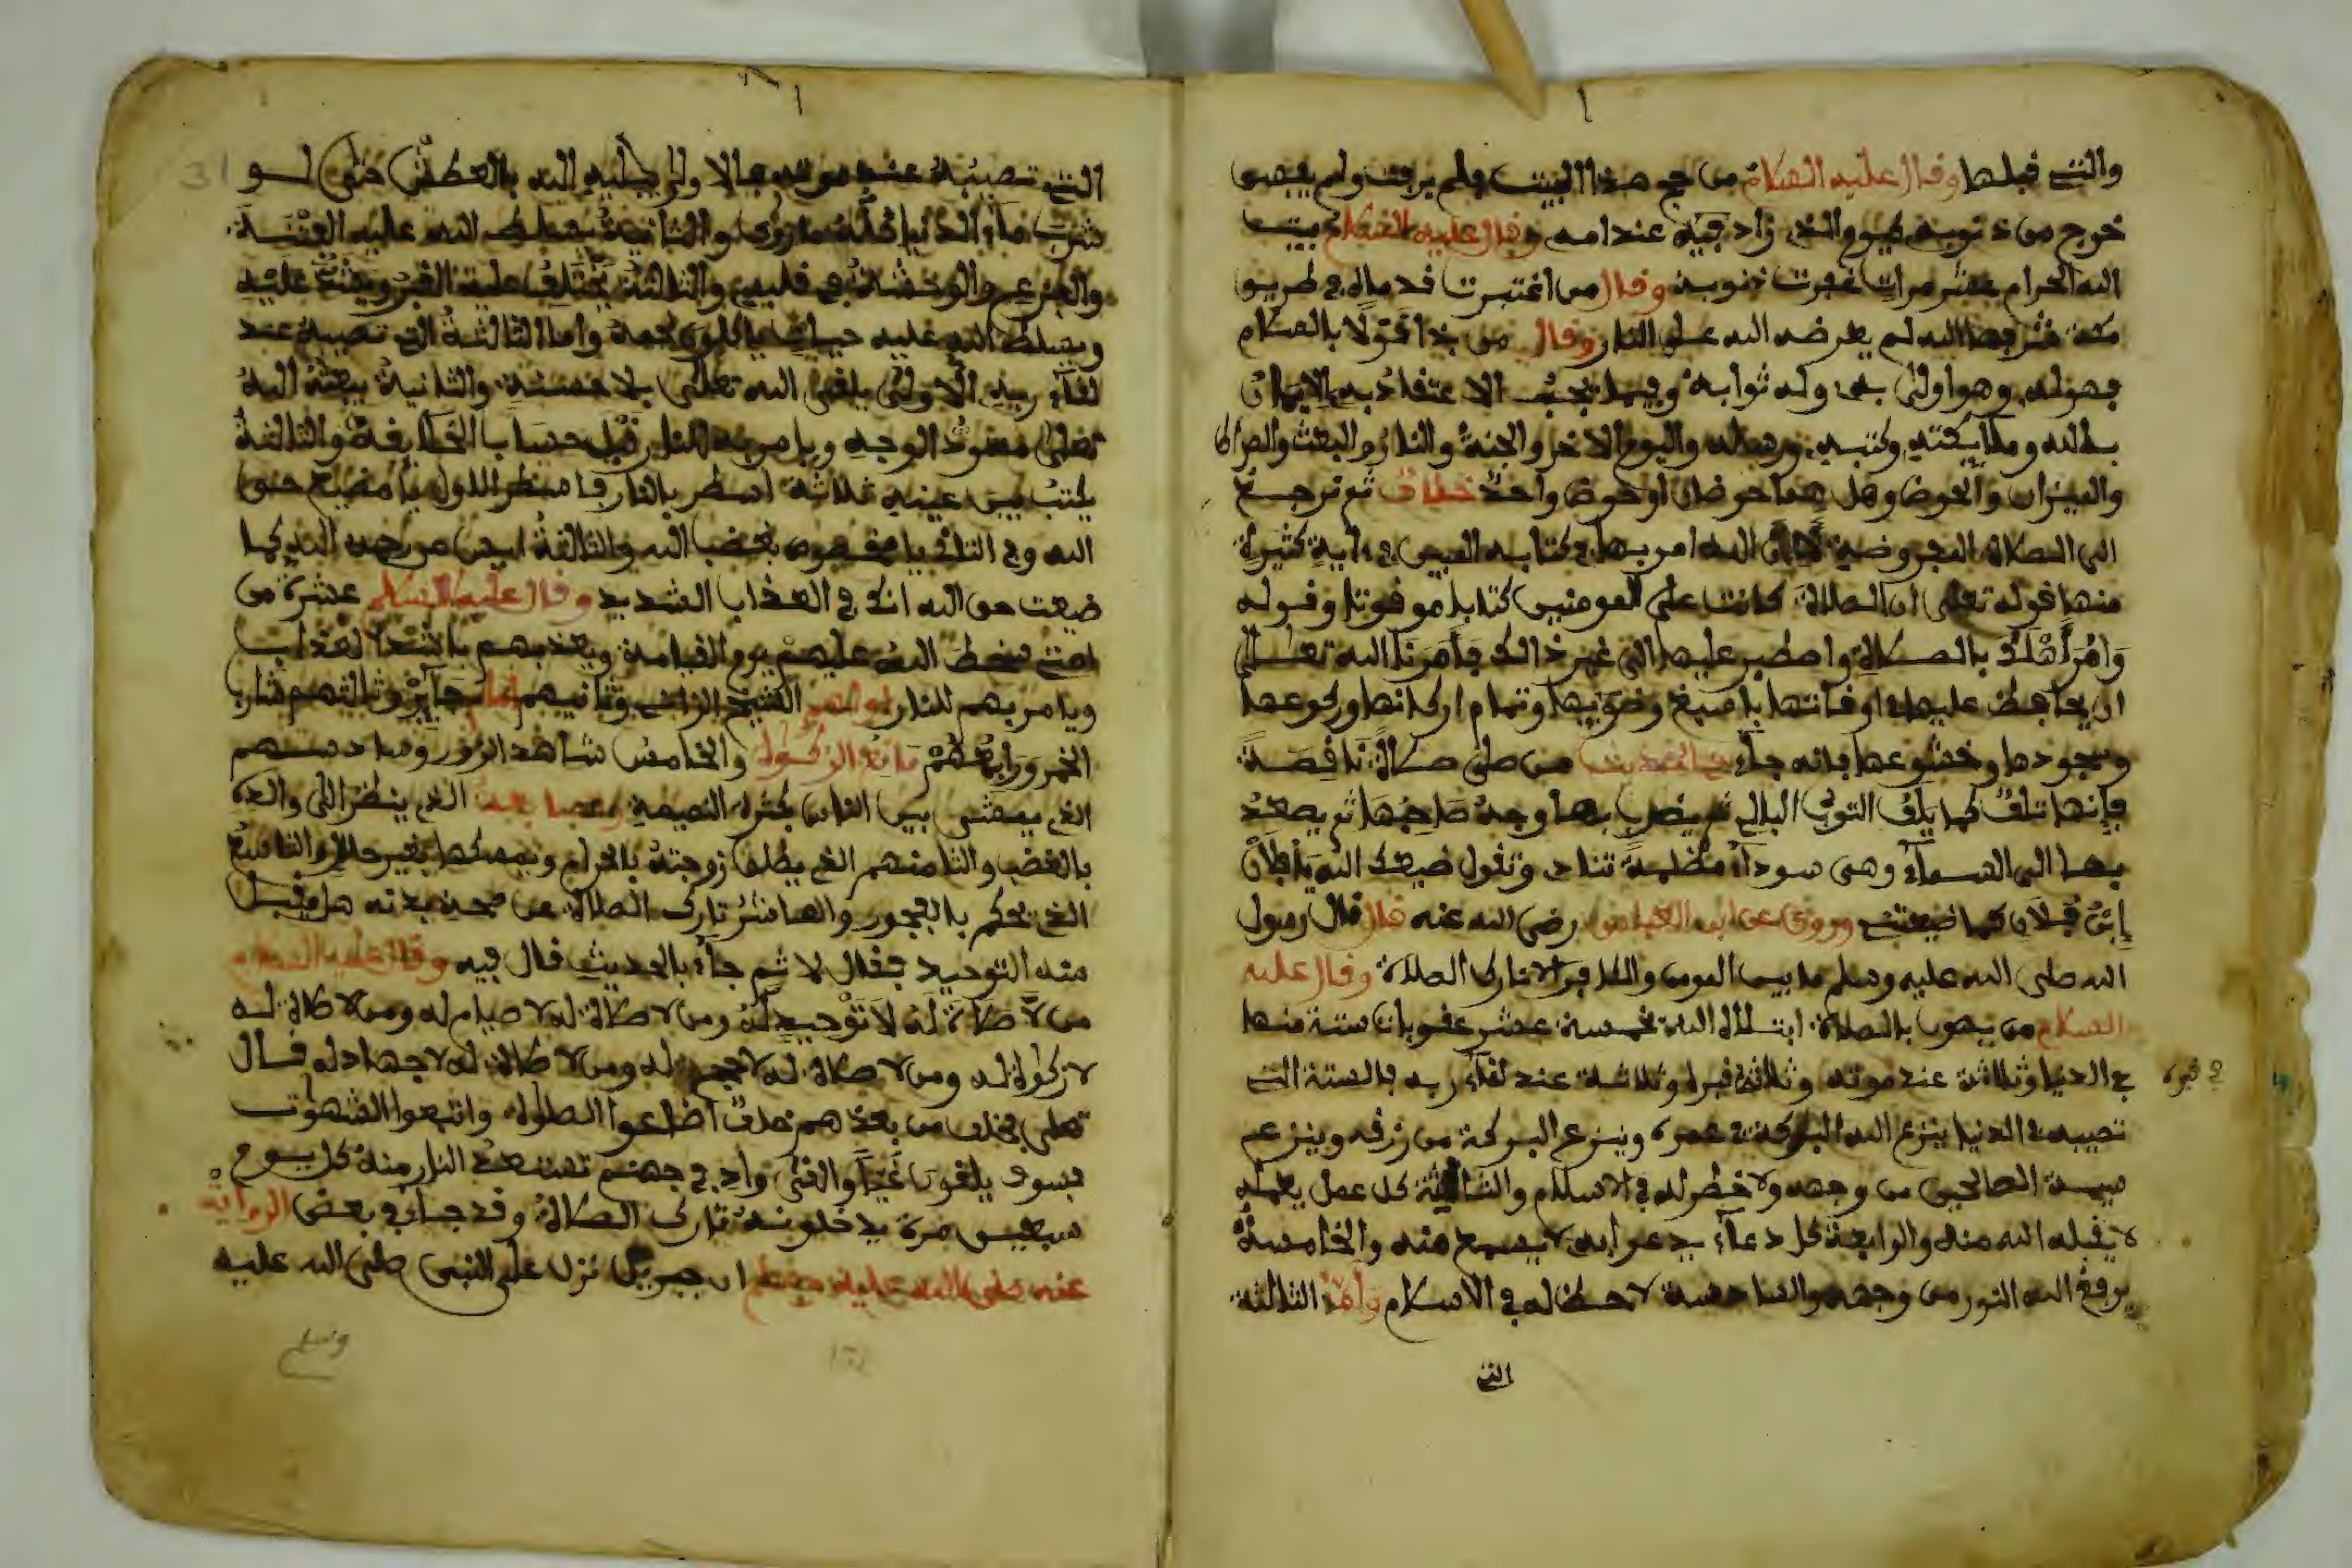 والتي قبلها وقال عليه الصلام من حج هذا البيت فلم يرفث ولم يفسق
خرج من ذنوبه كيوم ولدته امه وقال عليه الصلام بيت
الله الحرام عشر مرات غفرت ذنوبه وقال من اغتبرت قدماه في طريق
مكة شرفها الله لم يعرضه الله على النار وقال
وهو اولى به وله ثوابه وفيما يجب الاعتقاد به الايمان
بالله وملايكته وكتبه ورسله واليوم الاخر والجنة والنار والبعث والصراط
والميزان والحوض وهل هما حوضان او حوض واحد خلاف ثم نرجع
الى الصلاة المفروضة الله امر بها في كتابه المبين في ءاية كثيرة
منها قوله تعلى ان الصلاة كانت على المومنين كتابا موقوتا وقوله
وامر اهلك بالصلاة واصطبر عليها الى غير ذالك فامرنا الله تعلى
ان يحافظ عليها اوقاتها باسبغ وضوءيها وتمام اركانها وركوعها
وسجودها وخشوعها فانه جاء في الحديث من صلى صلاة ناقصة
فإنها تلف كما يلف الثوب البالي ثم يضرب بها وجه صاحبها ثم يصعد
بها الى السماء وهي سوداء مظلمة تنادي وتقول ضيعك الله يا فلان
إبن فلان كما ضيعتني وروي عن ابن العباس رضي الله عنه قال قال رسول
الله صلى الله عليه وسلم ما بين المومن والكافر الا تارك الصلاة وقال عليه
الصلام من يهون بالصلاة ابتلاه الله بخمسة عشر عقوبات ستة منها
في الدنيا وثلاثة عند موته وثلاثة في قبره وثلاثة عند لقاء ربه فالستة التي
تصيبه في الدنيا ينزع الله البركة في عمره وينزع البركة من رزقه وينزع
سيمة الصالحين من وجهه ولا حظ له في الاسلام والثالثة كل عمل يعمله
لا يقبله الله منه والرابعة كل دعاء يدعوا به لا يسمع منه والخامسة
يرفع الله النور من وجهه والسادسة لا حظ له في الاسلام وأما الثالثة
التي
في قبره
التي تصيبه عند موته ولا يجليه الله بالعطش حتى لو
شرب ماء الدنيا كله ما روي والثانية يسلط الله عليه الفتنة
والوحشة في قلبه والثالثة
ويسلط الله عليه حيات ياكلون لحمه واما الثالثة التي تصيبه عند
لقاء ربه الاولى يلقى الله تعلى بلا حسنة والثانية يبعثه الله
تعلى مسود الوجه ويامر به للنار قبل حساب الخلايقة والثالثة
يكتب بين عينيه ثلاثة اسطر بالنار في السطر الاول يا مضيع حق
الله وفي الثاني يا مخصوص بغضب الله والثالثة ايس من رحمة الله كما
ضيعت حق الله انك في العذاب الشديد وقال عليه السلام عشرة من
امتي سخط الله عليهم يوم القيامة ويعذبهم باشد العذاب
ويامر بهم للنار اولهم الشيخ الزاني وثانيهم إمام جآير وثالثهم شارب
الخمر ورابعهم مانع الزكوة والخامس شاهد الزور وسادسهم
الذي يمشي بين الناس بكثرة النميمة وسابعهم الذي ينظر الى والديه
بالغضب والثامنهم الذي يطلق زوجته بالحرام ويمسكها بغير حلال والتاسع
الذي يحكم بالفجور والعاشر تارك الصلاة من صحة بدنه هل يقبل
منه التوحيد فقال لا ثم جاء بالحديث قال فيه وقال عليه السلام
من لا صلاة له لا توحيد له ومن لا صلاة له لا صيام له ومن لا صلاة له
لا زكوة له ومن لا صلاة له لا حج له ومن لا صلاة له لا جهاد له قال
تعلى فخلف من بعدهم خلف اضاعوا الصلوة واتبعوا الشهوت
فسوف يلقون غيا والغي واد في جهنم تستعيذ النار منه كل يوم
سبعين مرة يدخلونه تارك الصلاة وقد جاء في بعض الرواية
عنه صلى الله عليه وسلم ان جبريل نزل على النبي صلى الله عليه
وسلم